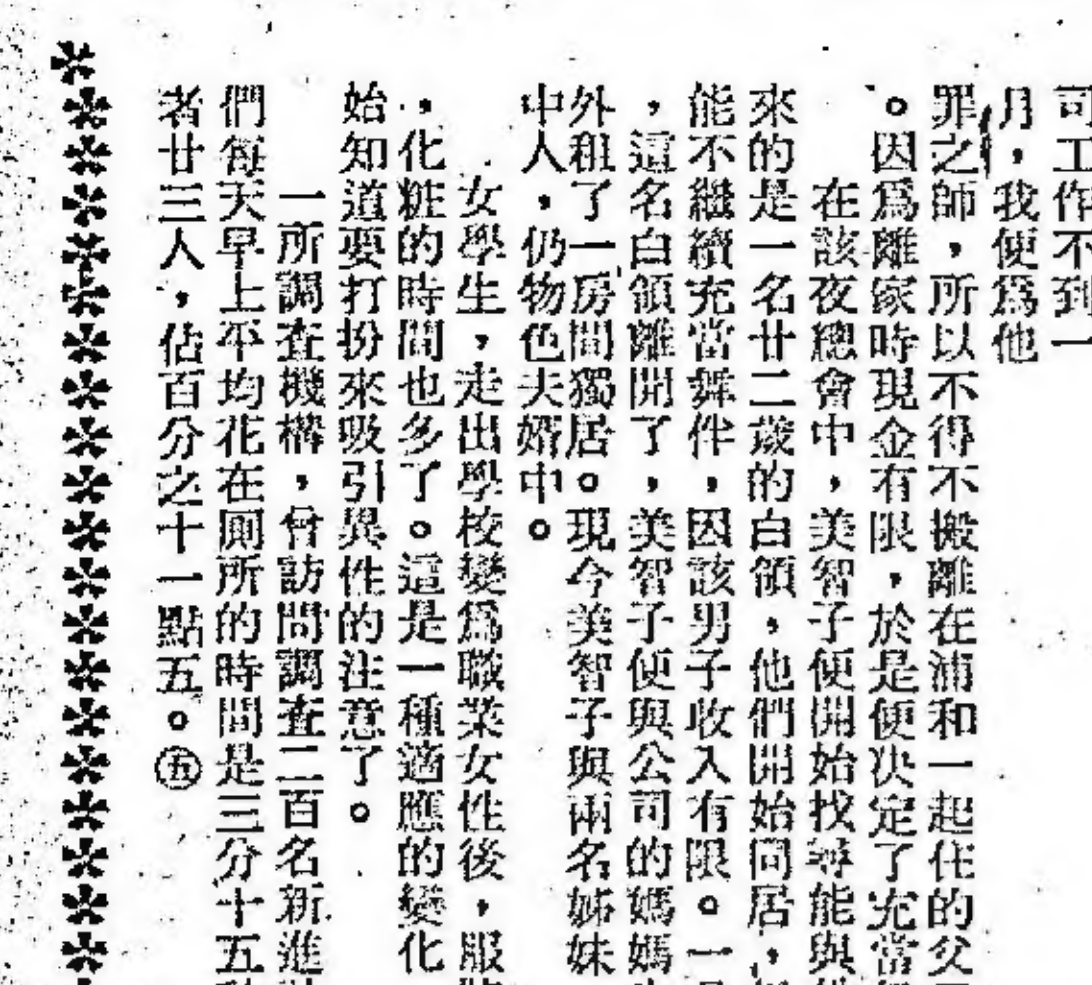 司工作不到一
月，我便爲他
罪之師，所以不得不搬離在浦和一起住的父
。因爲離家時現金有限，於是便決定了充當
在該夜總會中，美智子便開始找尋能與
來的是一名廿二歲的白領，他們開始同居，
能不繼續充當舞伴，因該男子收入有限。一
，這名白領離開了，美智子便與公司的媽媽
外租了一房間獨居。現今美智子與兩名姊妹
中人，仍物色夫婿中。
女學生，走出學校變爲職業女性後，服
，化粧的時間也多了。這是一種適應的變化
始知道要打扮來吸引異性的注意了。
一所調查機構，曾訪問調查二百名新進
們每天早上平均花在厠所的時間是三分十五
者廿三人，佔百分之十一點五。㊄